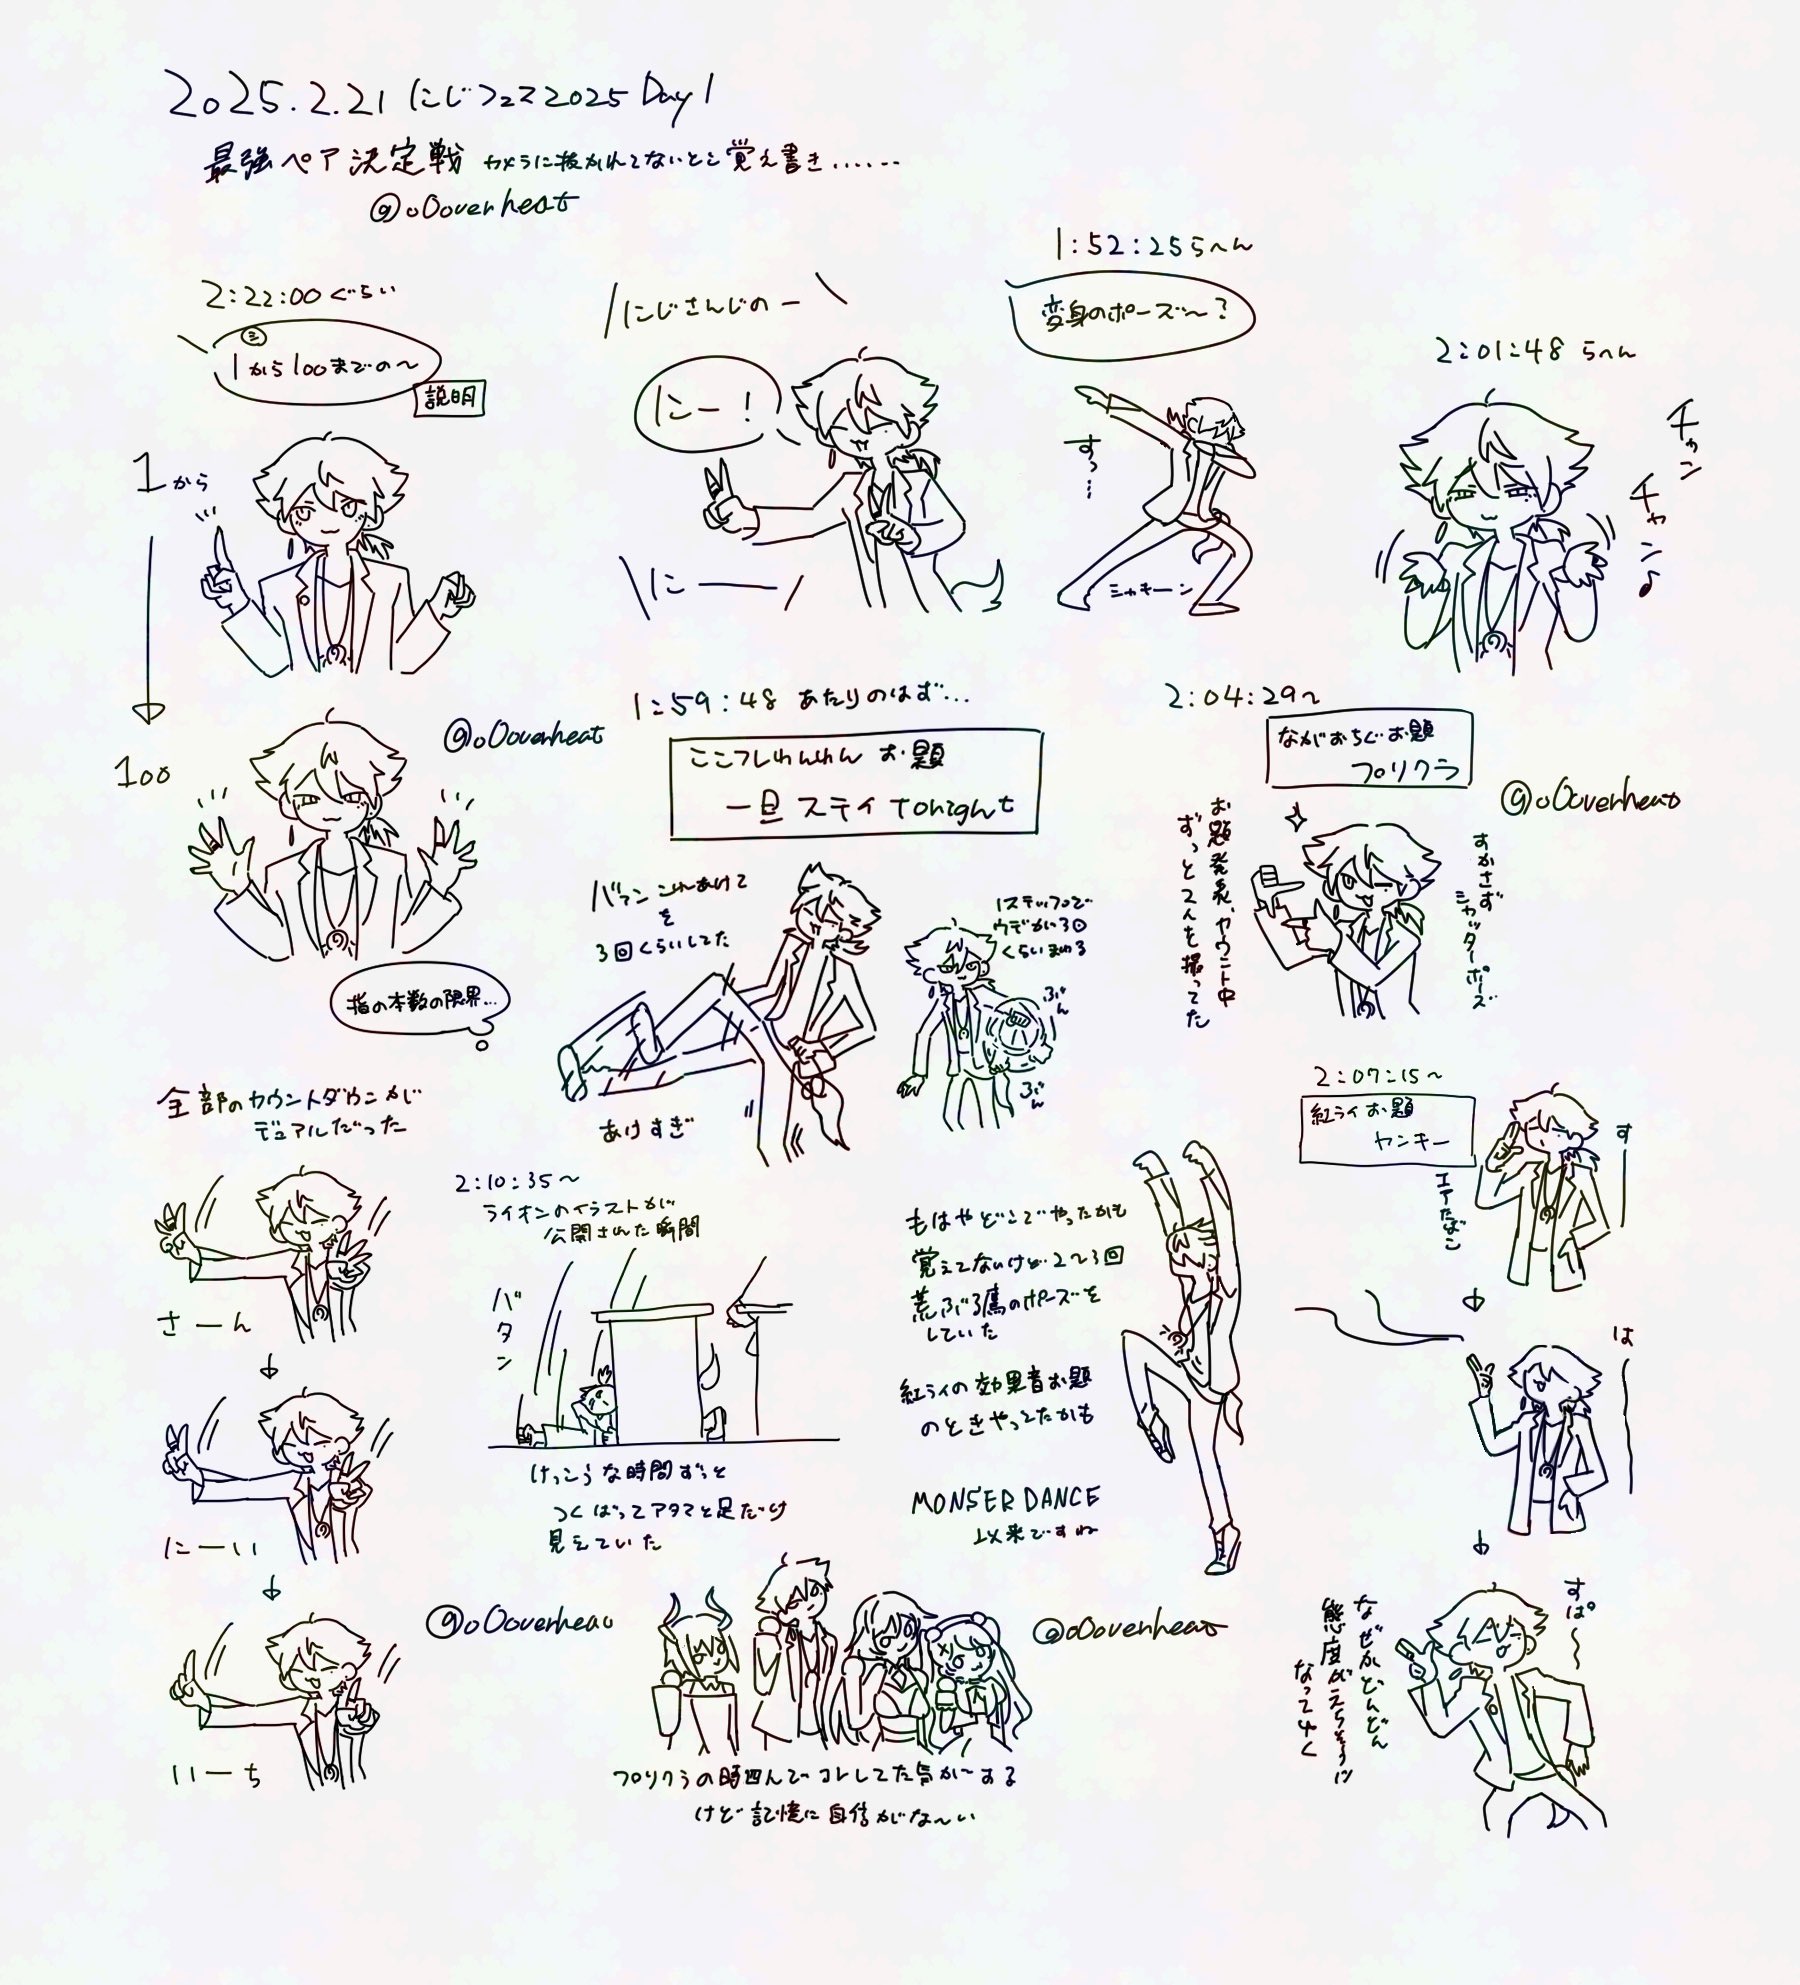 2025.2.21 にじフェス2025 Day1
最強ペア決定戦 カメラに抜かれてないとこ覚え書き......
@o0overheat
2:22:00ぐらい
シ
1から100までの〜
説明
1から
100
指の本数の限界...
\にじさんじのー\
にー!
\にーー/
1:52:25らへん
変身のポーズ〜?
すっ...
シャキーン
2:01:48 らへん
チャン
チャン♪
@o0overheat
1:59:48 あたりのはず...
ここフレわんわん お題
一旦ステイ Tonight
バァン これあけて
を
3回くらいしてた
あけすぎ
1ステップで
ウデが3回
くらいまわる
ぶん
ぶん
2:04:29〜
ながおちぐお題
プリクラ
@o0overheat
お題発表、カウント中
ずっと2人を撮ってた
すかさず
シャッターポーズ
全部のカウントダウンが
デュアルだった
さーん
にーい
いーち
2:10:35〜
ライオンのイラストが
公開された瞬間
バタン
けっこうな時間ずっと
つくばってアタマと足だけ
見えていた
もはやどこでやったかも
覚えてないけど2〜3回
荒ぶる鷹のポーズを
していた
紅ライの効果音お題
のときやってたかも
MONSER DANCE
以来ですね
2:07:15〜
紅ライお題
ヤンキー
エアたばこ
すー
はー
すぱ〜
なぜかどんどん
態度がえらそうに
なってゆく
@o0overheat
@o0overheat
プリクラの時四人でコレしてた気がする
けど記憶に自信がな〜い